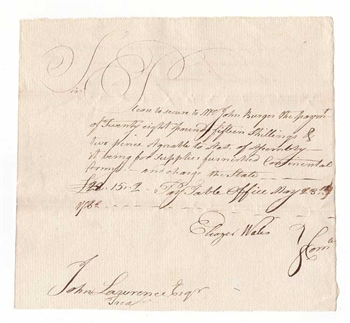 Sir
Please to secure to Mr John Burges the paymt
of Twenty eight pounds fifteen Shillings &
two pence agreable to Act of Assembly
it being for supplies furnished Continental
Army and charge the State
£28. 15. 2 Pay Table Office May 28th
1782
Eleazer Wales
} Comte
John Lawrence Esqr
Trea